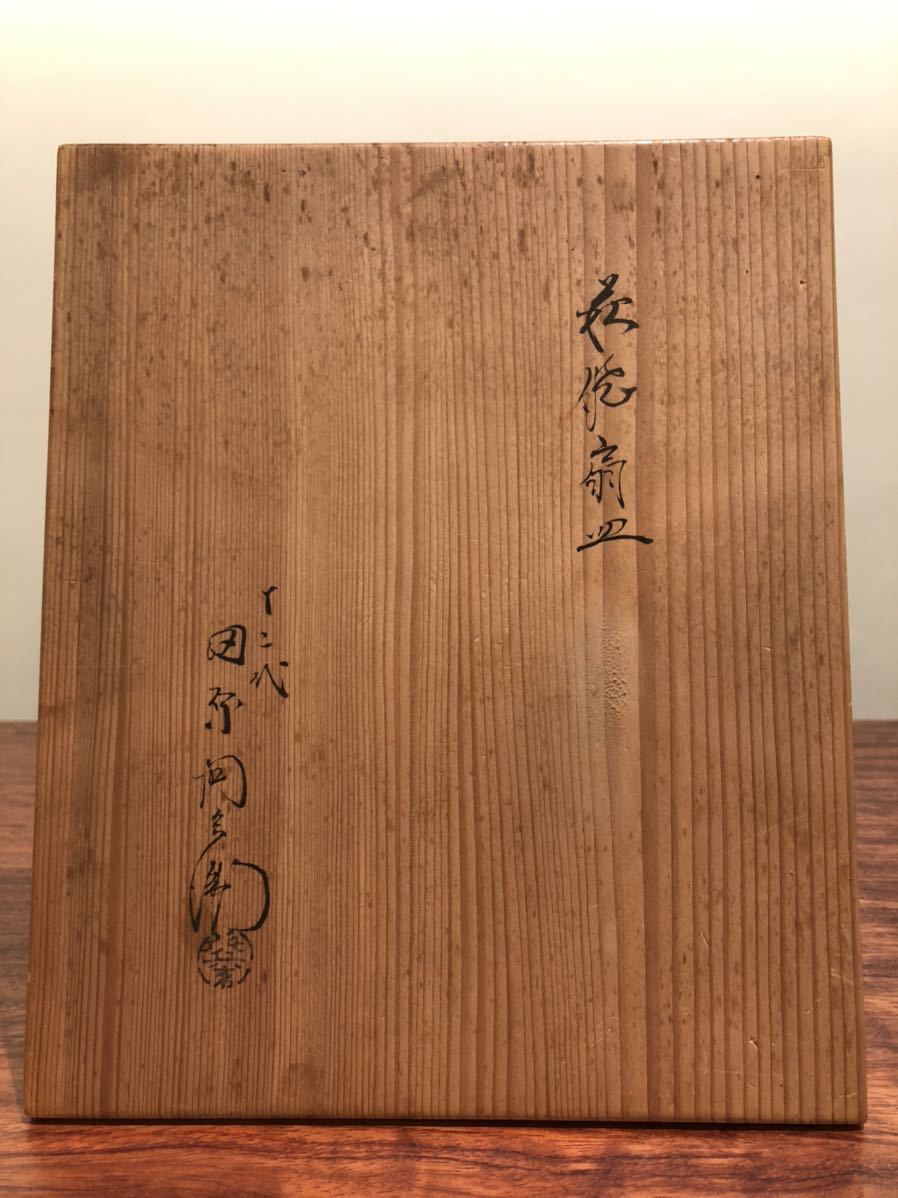 萩焼扇皿
十二代
田原陶兵衛